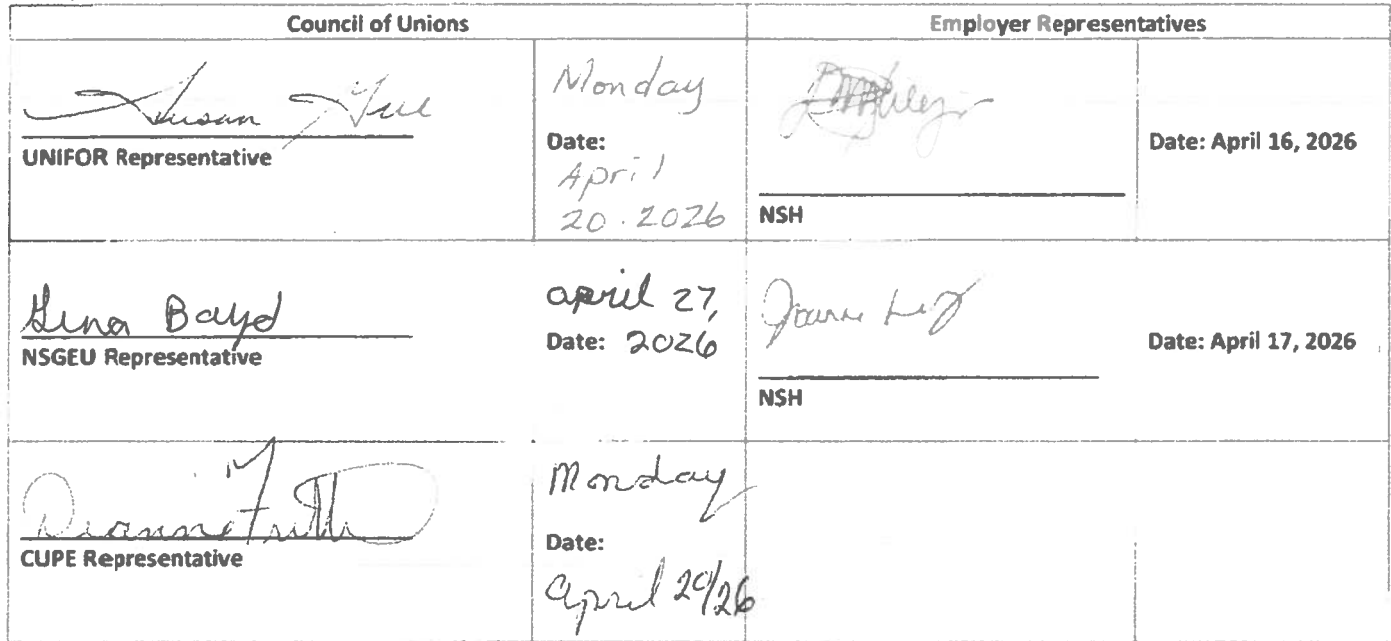 Council of Unions
Employer Representatives
Susan
UNIFOR Representative
Monday
Date:
April
20.2026
NSH
Date: April 16, 2026
Gina Boyd
NSGEU Representative
april 27,
Date: 2026
Joanne
NSH
Date: April 17, 2026
Dianne
CUPE Representative
Monday
Date:
april 20/26